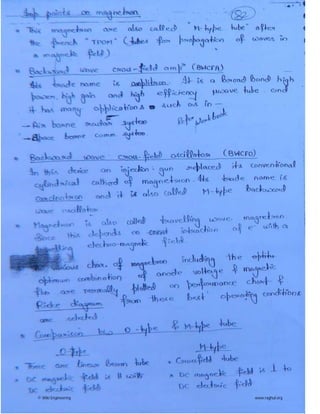 Imp points on magnetron
* This magnetron are also called "M-type tube" after
the french "TPOM" (tubes for propagation of waves in
a magnetic field)
* Backward wave cross-field amp (BWCFA)
Its trade name is amplitron. It is a Broad Band high
power, high gain and high efficiency μwave tube and
it has many applications such as in -
→ Air borne system
→ Space borne comm. system
* Backward wave cross-field oscillator (BWCFO)
In this device an injection gun replaced its conventional
cylindrical cathode of magnetron. Its trade name is
carcinotron and it is also called M-type backward
wave oscillator
* Magnetron is also called travelling wave magnetron
Since this depends on interaction of e⁻ with a
electro-magnetic field.
char. of magnetron including the
optimum combination of anode voltage & magnetic
flux are normally plotted on performance chart &
Rieke diagram from these best operating conditions
are selected
* Comparison b/w O-type & M-type tube
O-type
* These are linear Beam tube
* DC magnetic field is || with
DC electric field
M-type
* Crossfield tube
* DC magnetic field is ⊥ to
DC electric field
© Wiki Engineering
www.raghul.org